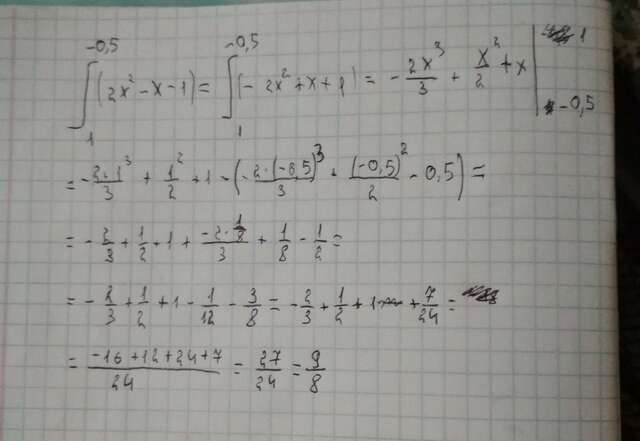 ∫₁^(-0,5) (2x² - x - 1) = ∫₁^(-0,5) (-2x² + x + 1) = -2x³/3 + x²/2 + x |^1_(-0,5)
= -2·1³/3 + 1²/2 + 1 - (-2·(-0,5)³/3 + (-0,5)²/2 - 0,5) =
= -2/3 + 1/2 + 1 + (-2·1/8)/3 + 1/8 - 1/2 =
= -2/3 + 1/2 + 1 - 1/12 - 3/8 = -2/3 + 1/2 + 1 + 7/24 =
= (-16+12+24+7)/24 = 27/24 = 9/8